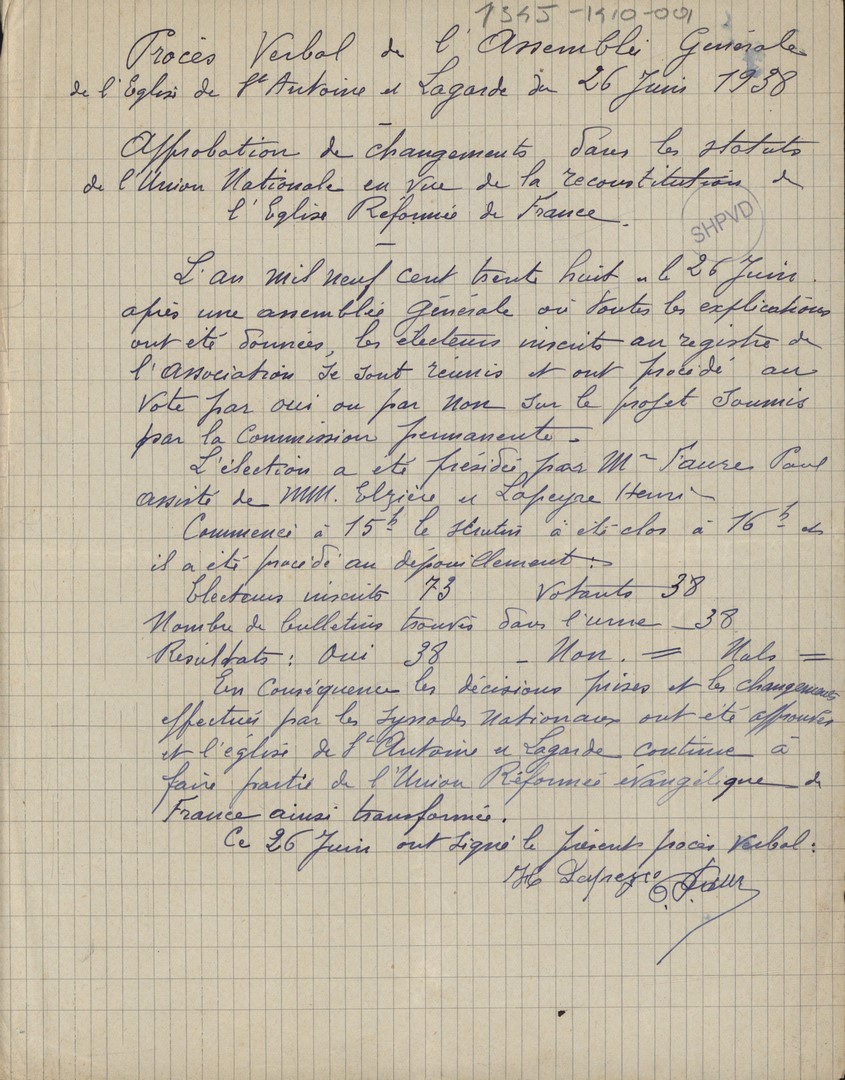 1345-1410-001
Procès Verbal de l'Assemblée Générale
de l'Eglise de St Antoine et Lagarde du 26 Juin 1938
Approbation de changements dans les statuts
de l'Union Nationale en vue de la reconstitution de
l'Eglise Réformée de France.
SHPVD
L'an mil neuf cent trente huit et le 26 Juin
après une assemblée Générale où toutes les explications
ont été données, les électeurs inscrits au registre de
l'Association se sont réunis et ont procédé au
vote par oui ou par non sur le projet soumis
par la Commission permanente.
L'élection a été présidée par Mr Faure Paul
assisté de MM. Elzière et Lapeyre Henri
Commencé à 15h le scrutin à été clos à 16h et
il a été procédé au dépouillement :
Electeurs inscrits 73 Votants 38
Nombre de bulletins trouvés dans l'urne _ 38
Résultats : Oui 38 _ Non . = Nuls =
En conséquence les décisions prises et les changements
effectués par les synodes nationaux ont été approuvés
et l'église de St Antoine et Lagarde continue à
faire partie de l'Union Réformée évangélique de
France ainsi transformée.
Ce 26 Juin ont signé le présents procès verbal :
H Lapeyre